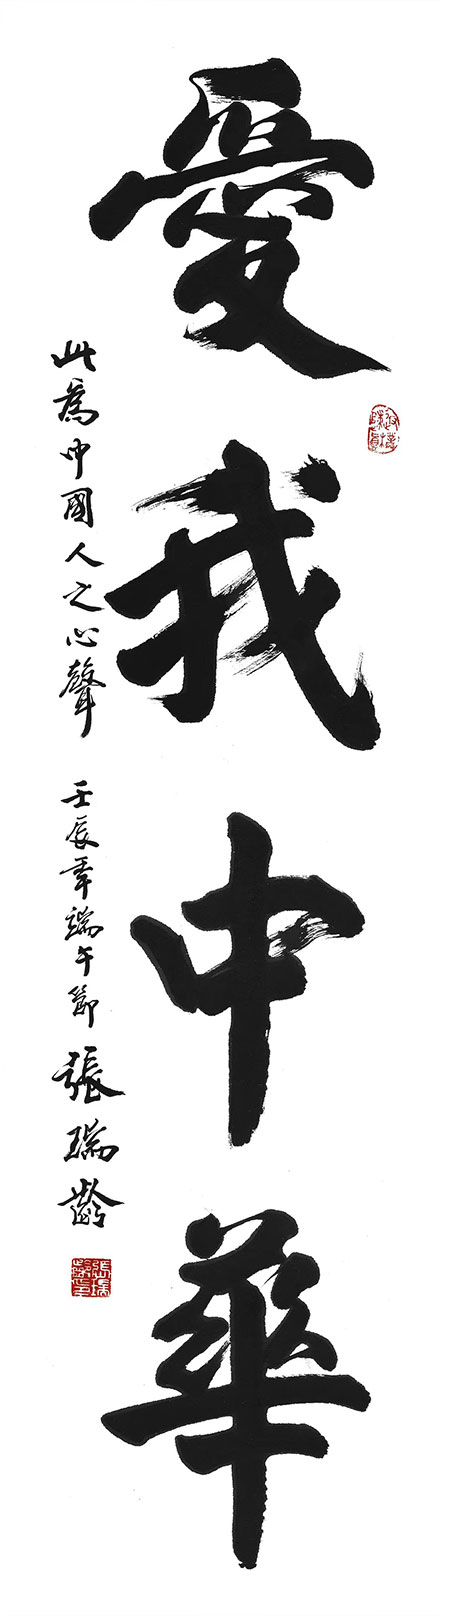 愛我中華
此為中國人之心聲 壬辰年端午節 張瑞齡
張瑞齡印